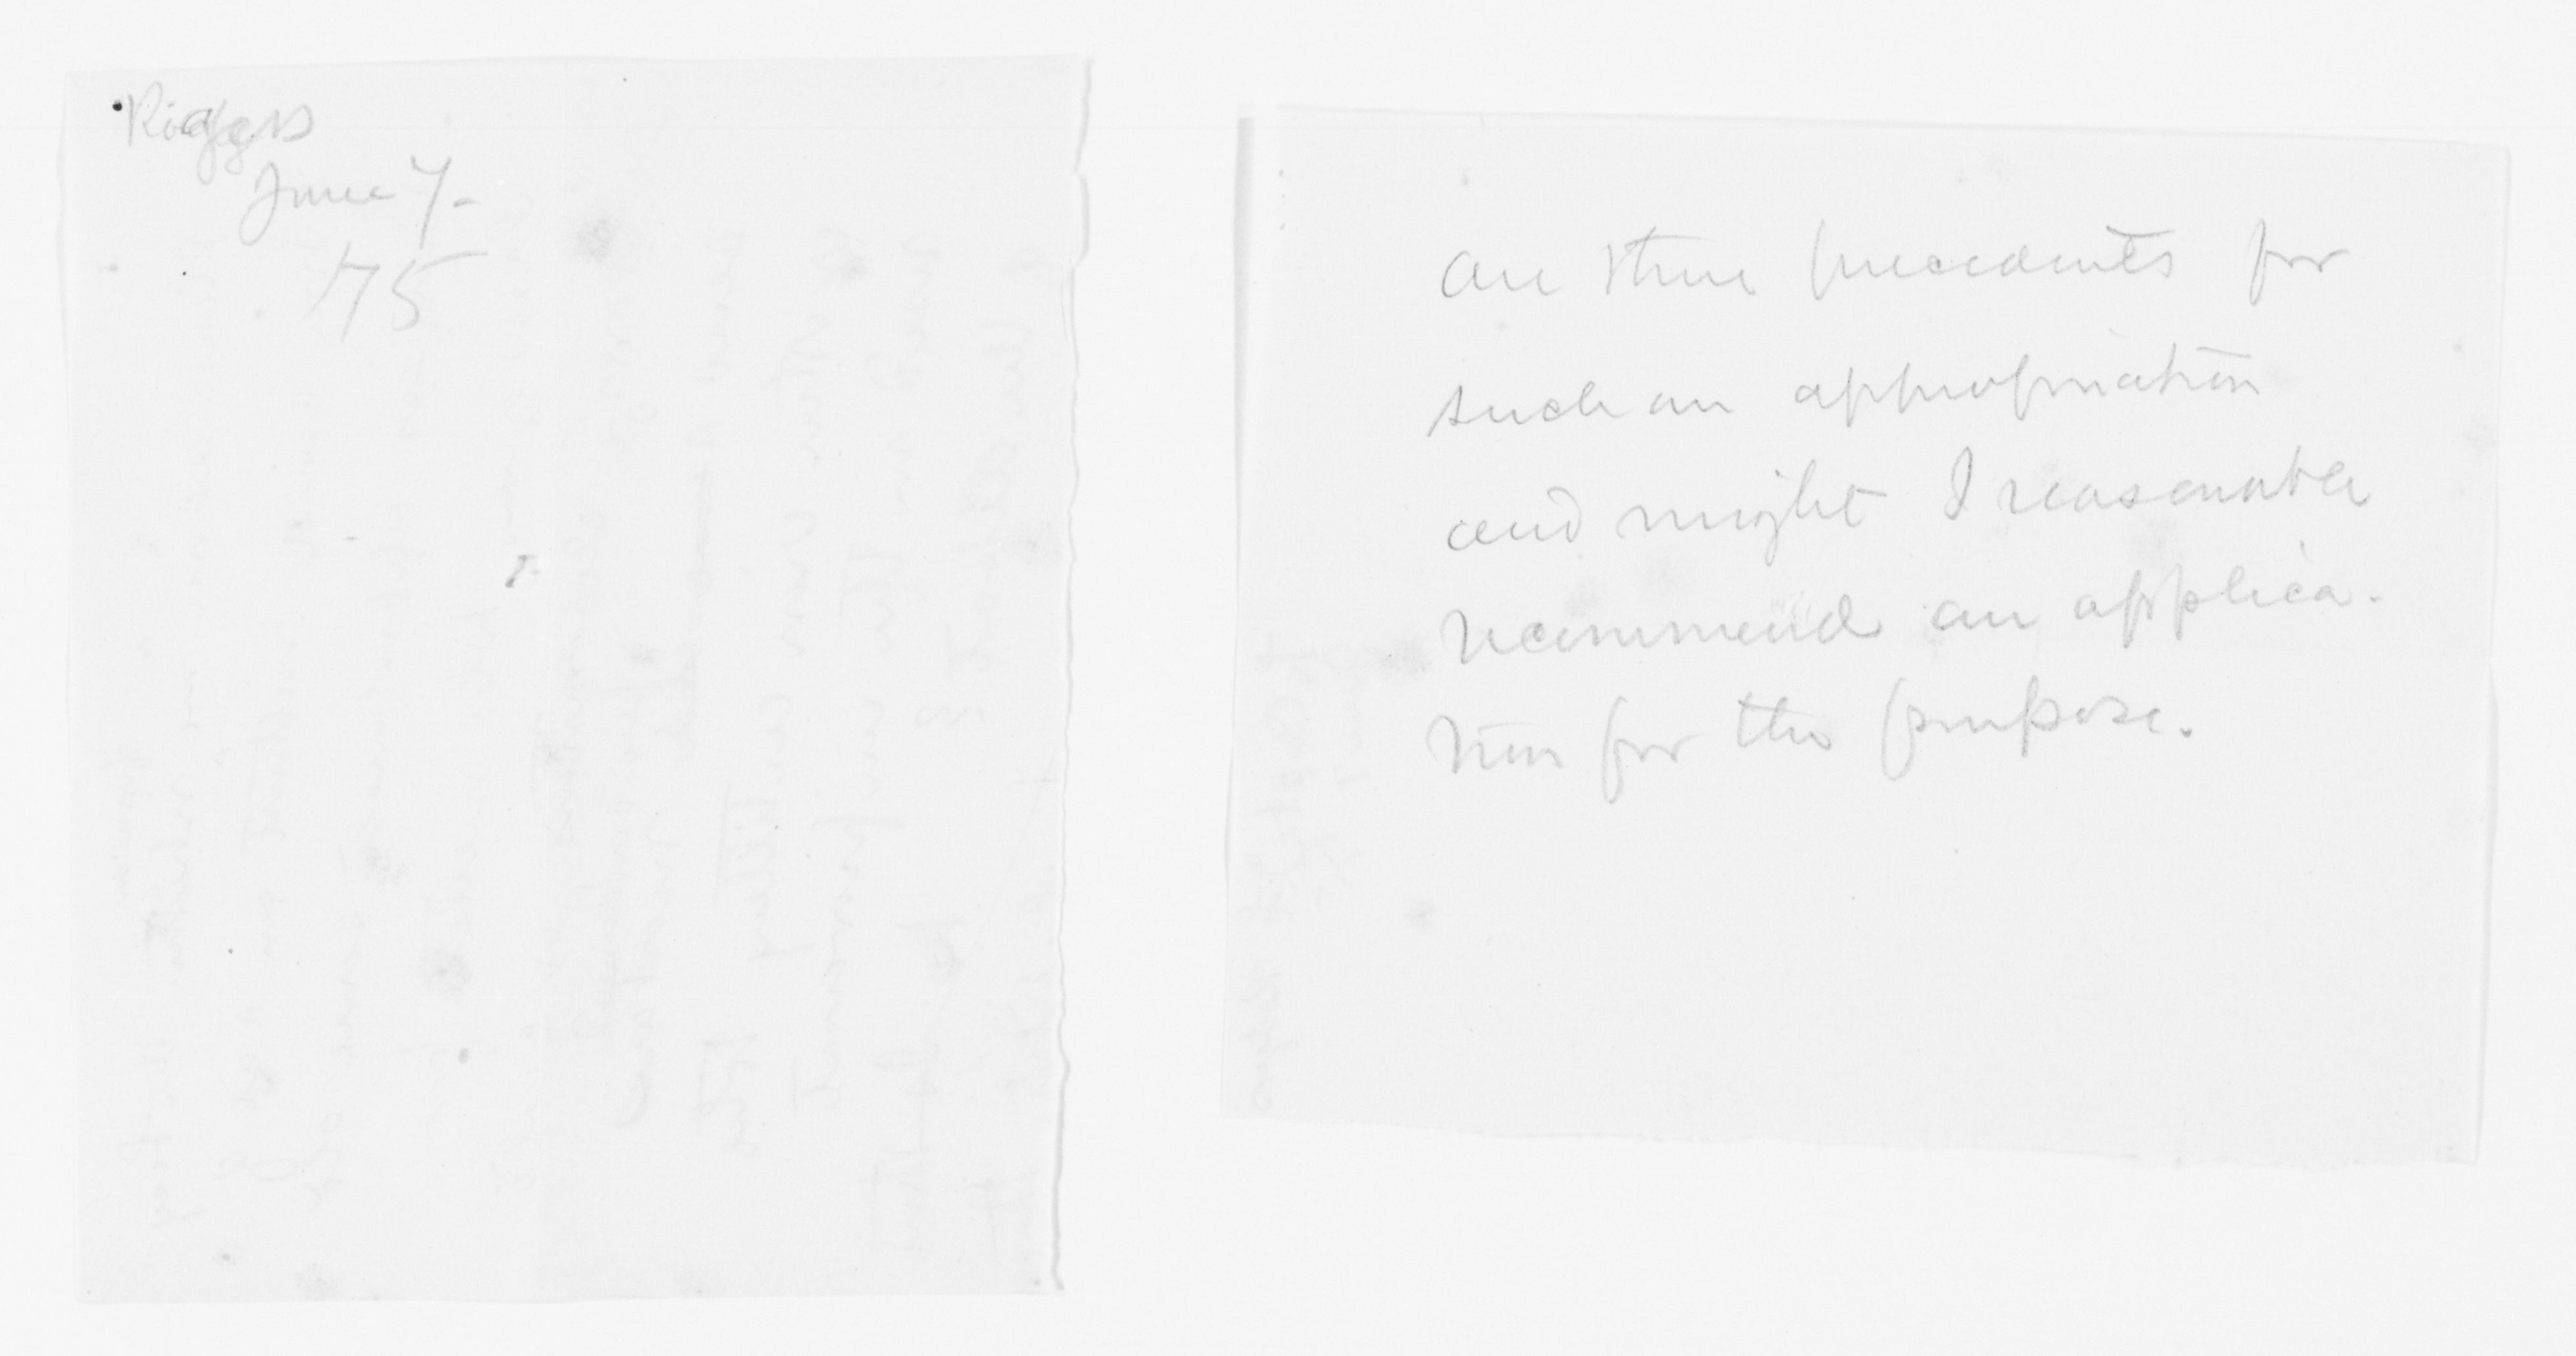 Riggs
June 7-
'75
are there precedents for
such an appropriation
and might I reasonable
recommend an applica-
tion for the purpose.